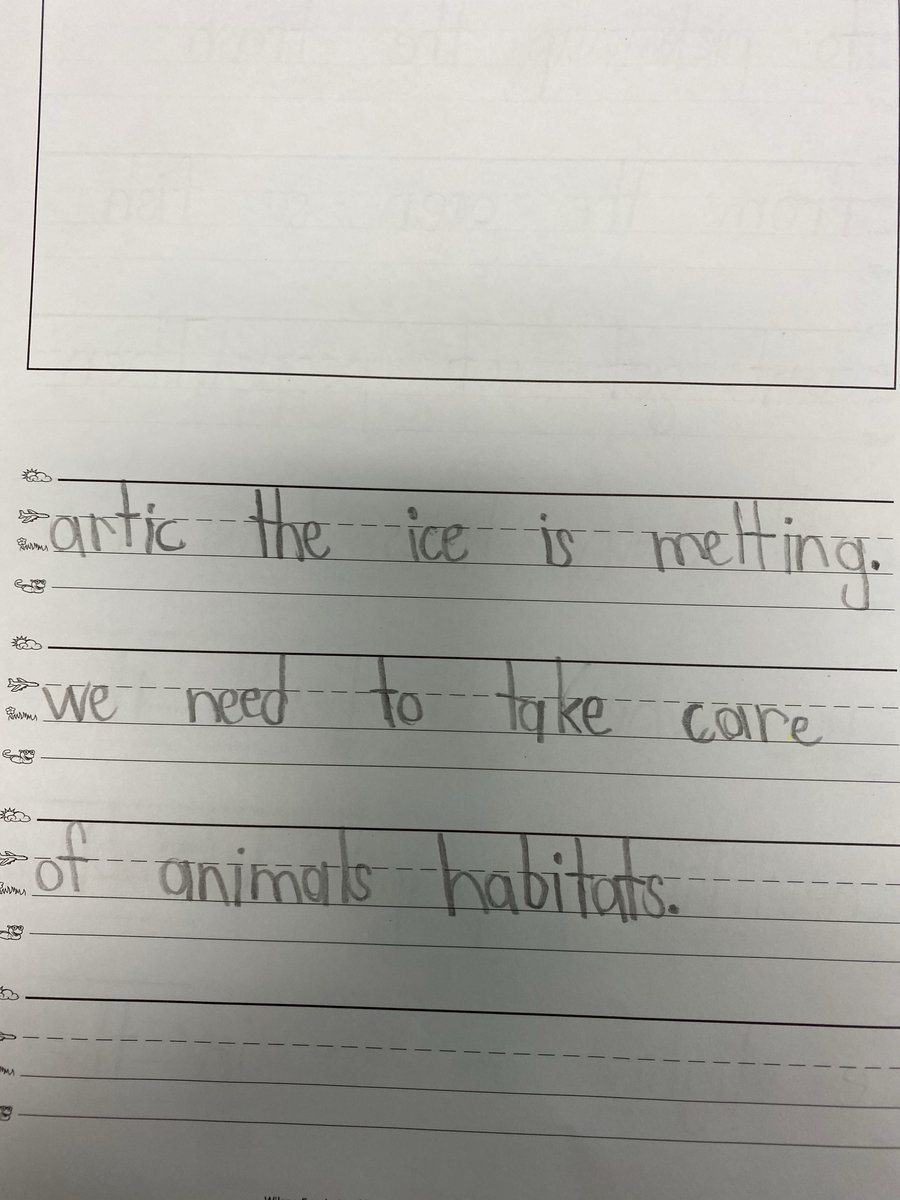 artic the ice is melting.
we need to take care
of animals habitats.